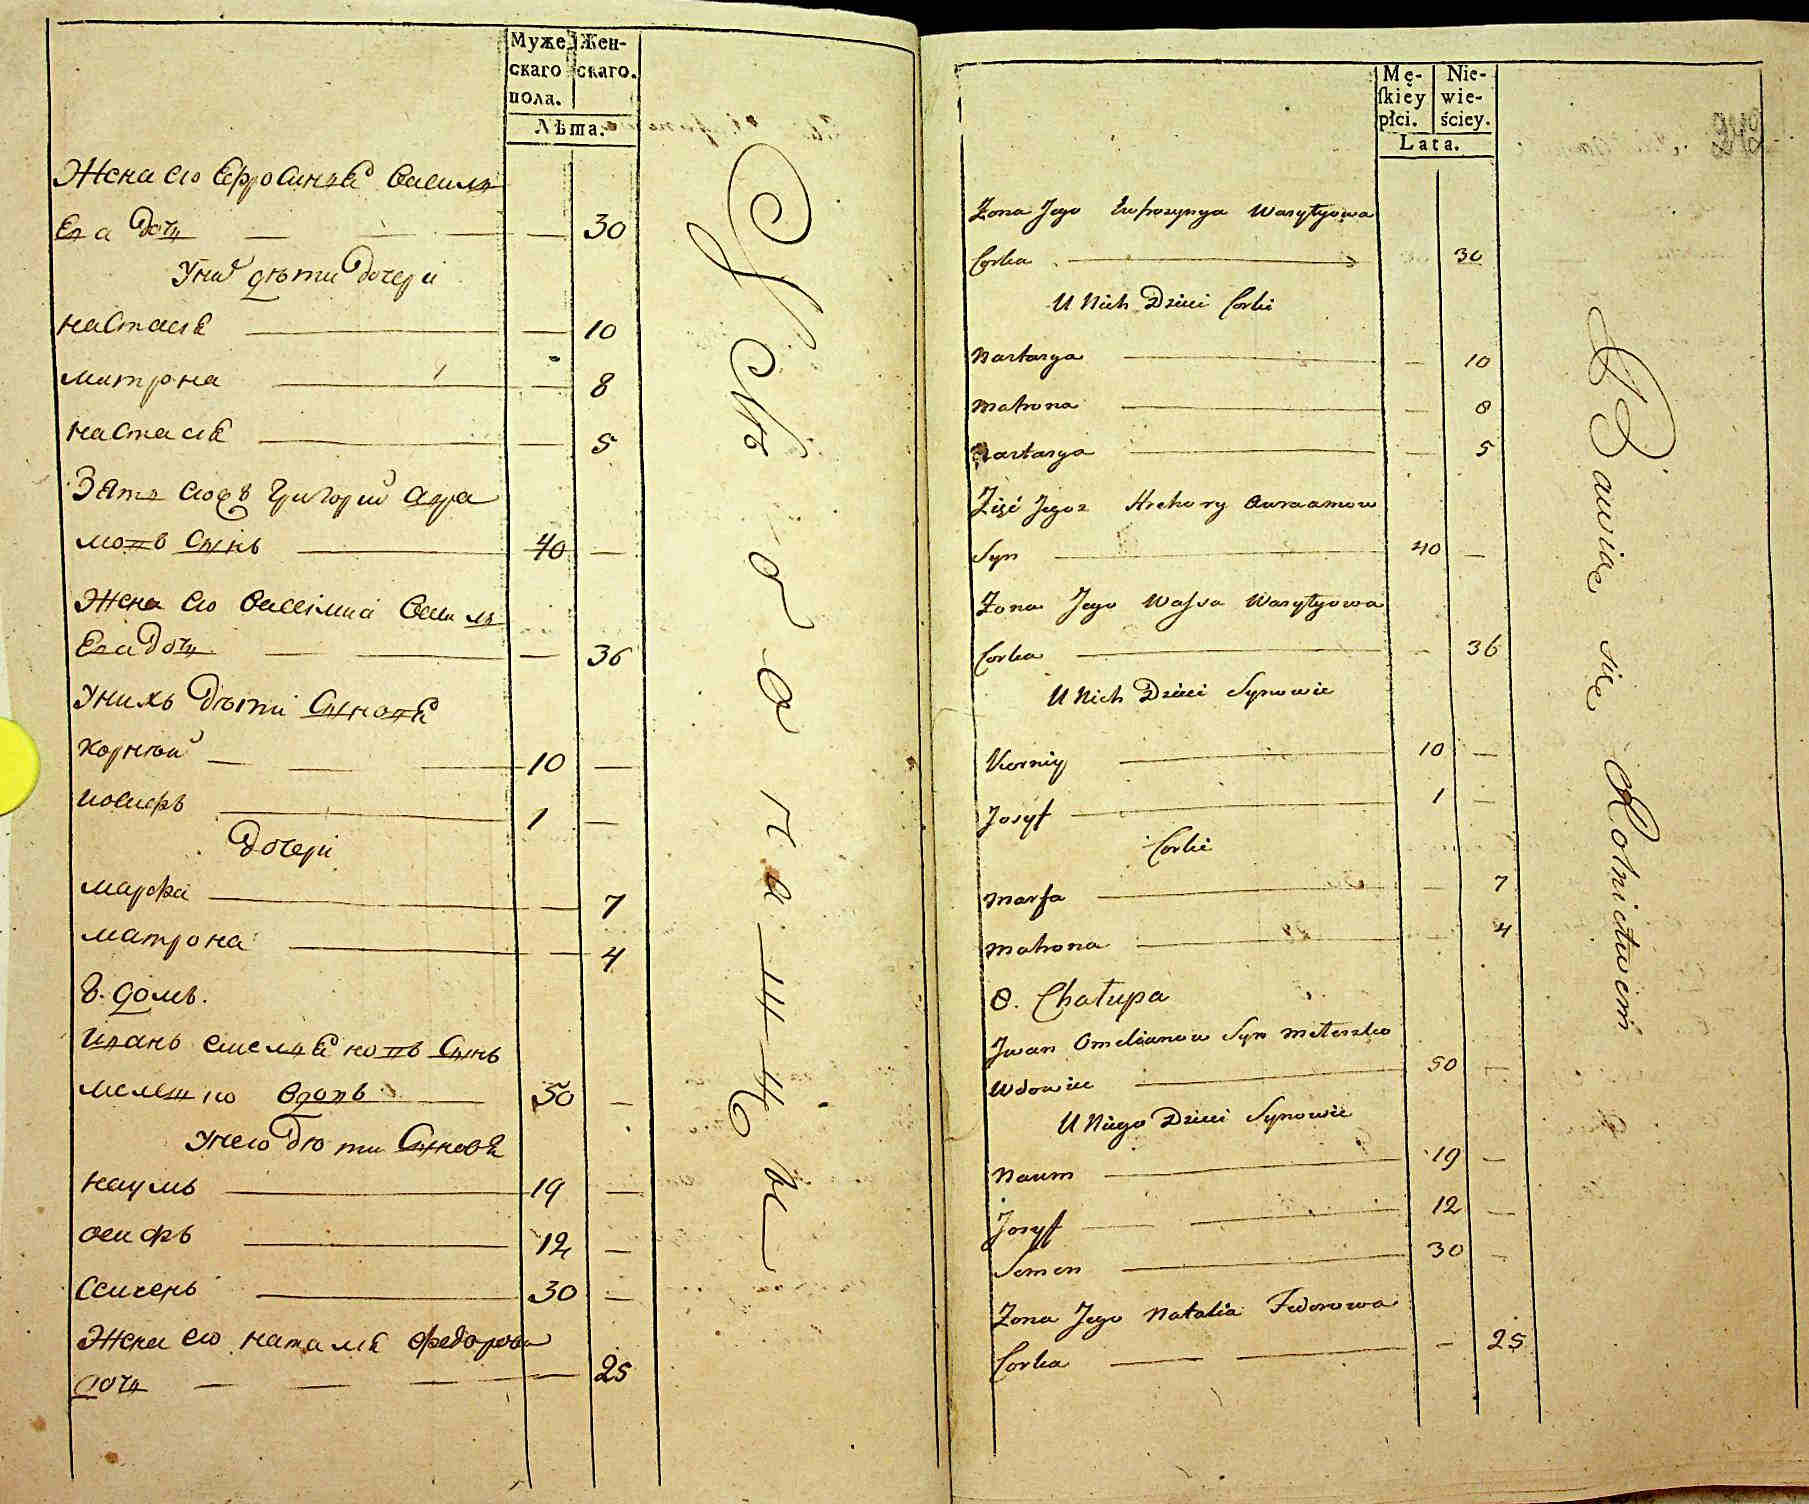 Муже-
скаго
пола.
Жен-
скаго.
Лѣта.
Жена его Ефросинѣя Василь
Ева дочь — 30
У них дѣти дочери
Настасія — 10
Матрона — 8
Настасія — 5
Зять его Григорий Авра
мовъ Сынъ — 40 —
Жена его Василь
Ева дочь — 36
У нихъ дѣти Сыновя
Корнѣй — 10 —
Иосифъ — 1 —
Дочери
Марфа — 7
Матрона — 4
8. домъ.
Иванъ Емельяновъ Сынъ
вдовъ — 50 —
У него дѣти Сыновя
Наумъ — 19 —
Осифъ — 12 —
Семенъ — 30 —
Жена его Наталія Федорова
дочь — 25
Mę-
skiey
płci.
Nie-
wie-
ściey.
Lata.
Żona Jego Eufrozynya Wasylyowa
Corka — 30
U Nich Dzieci Corki
Nastasya — 10
Matrona — 8
Nastasya — 5
Zięć Jegoz Hrehory Awraamow
Syn — 40 —
Żona Jego Wassa Wasylyowa
Corka — 36
U Nich Dzieci Synowie
Korniy — 10 —
Josyf — 1 —
Corki
Marfa — 7
Matrona — 4
8. Chałupa
Jwan Omelianow Syn Meleszko
Wdowiec — 50 —
U Niego Dzieci Synowie
Naum — 19 —
Josyf — 12 —
Semen — 30 —
Żona Jego Natalia Fedorowa
Corka — 25
Bawią się Rolnictwem